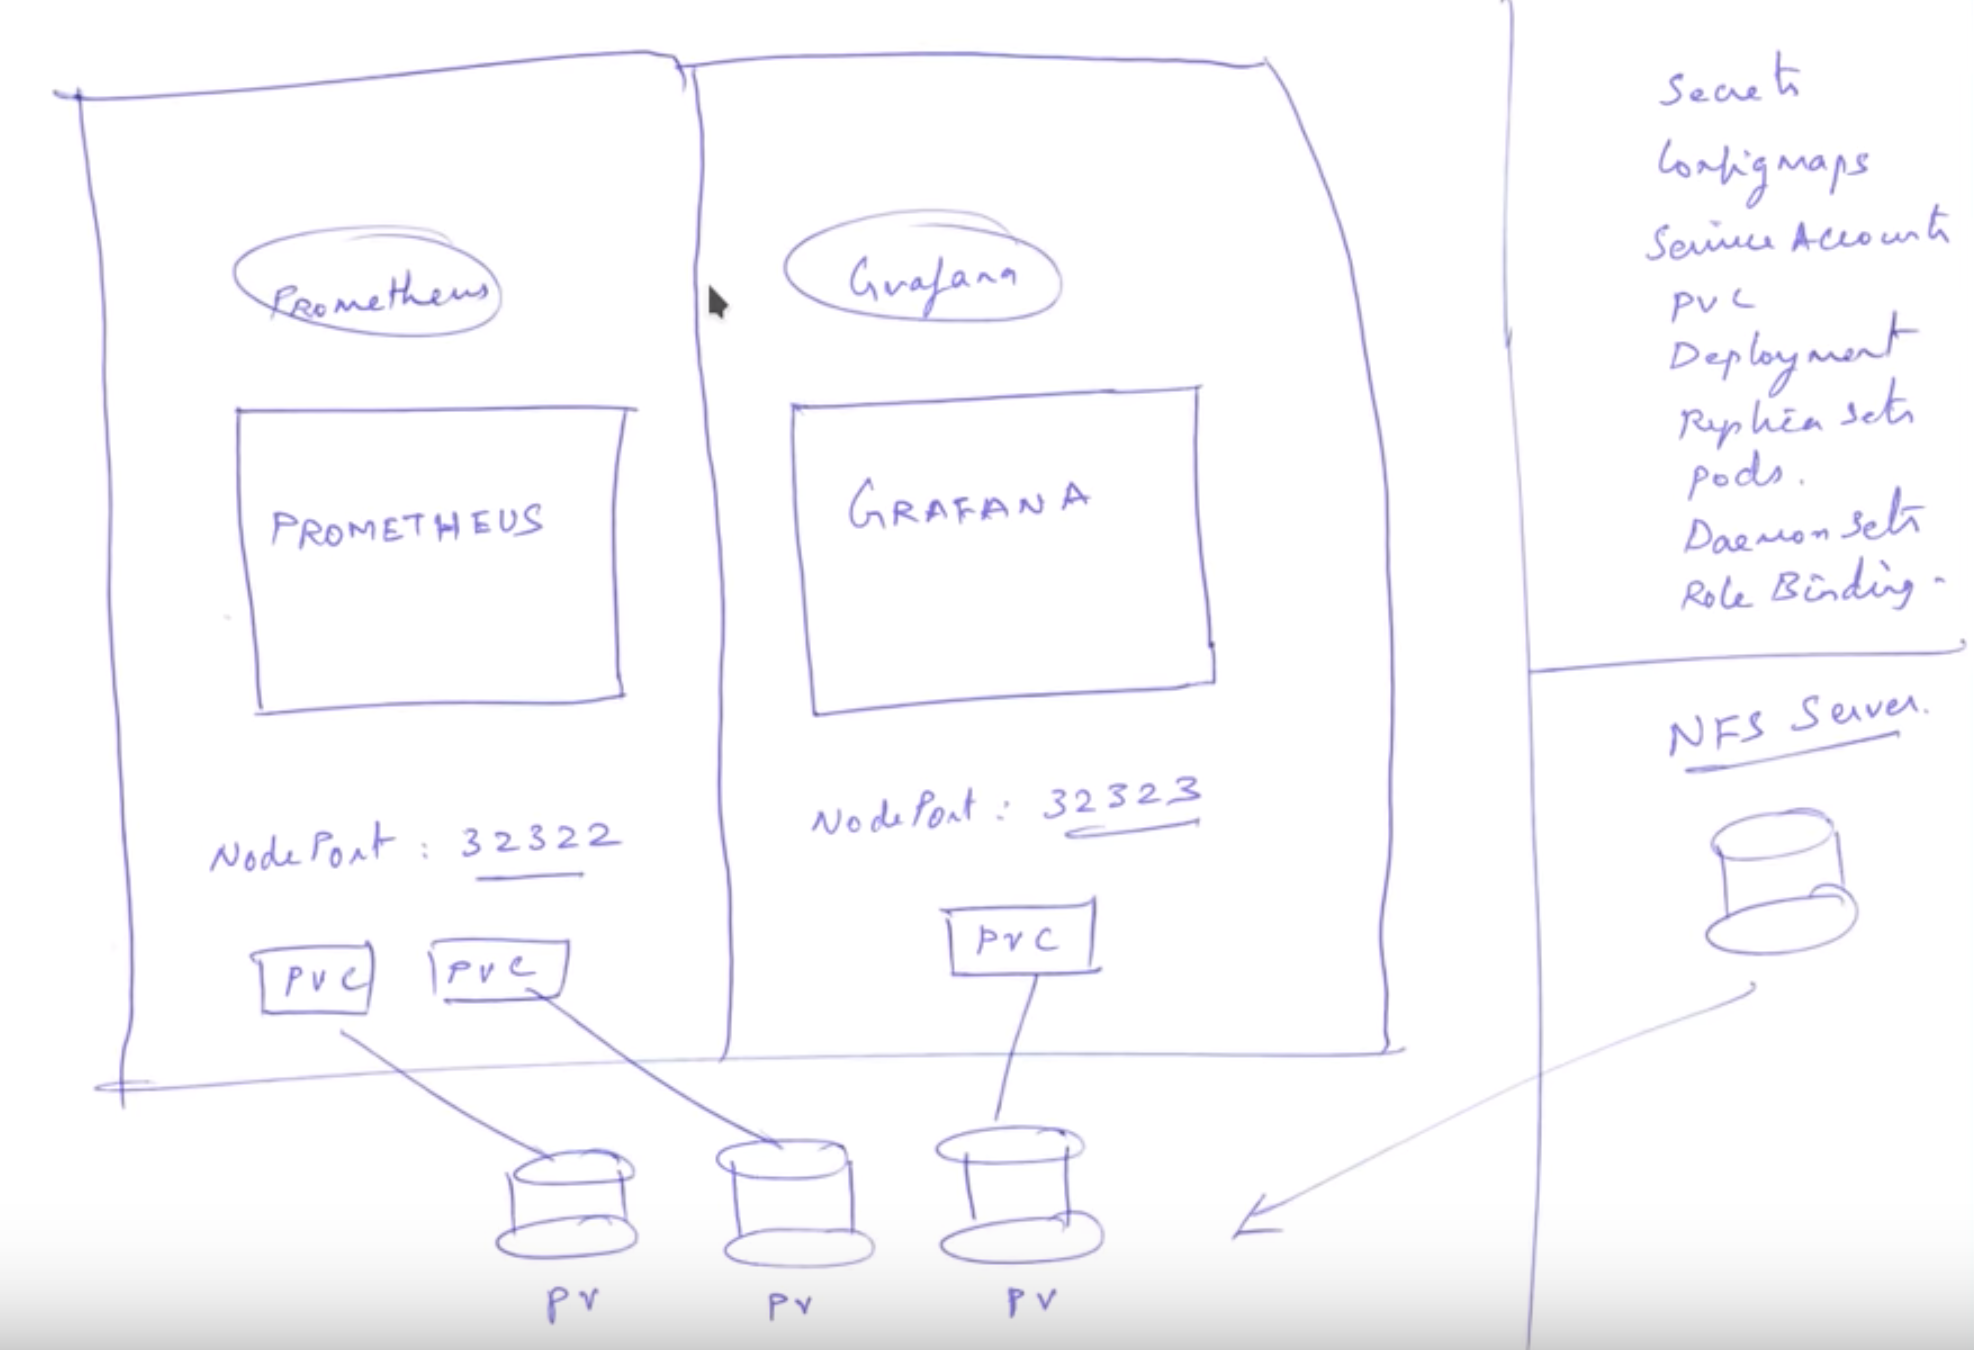 Prometheus
PROMETHEUS
NodePort : 32322
PVC PVC
Grafana
GRAFANA
NodePort : 32323
PVC
PV PV PV
Secrets
Configmaps
Service Accounts
PVC
Deployment
Replica Sets
Pods.
Daemon Sets
Role Binding -
NFS Server.